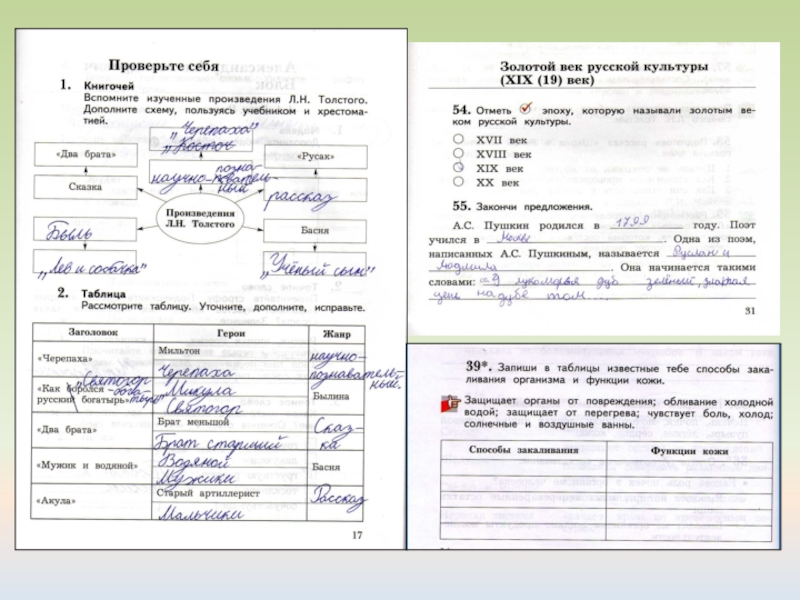 Проверьте себя
1. Книгочей
Вспомните изученные произведения Л.Н. Толстого.
Дополните схему, пользуясь учебником и хрестома-
тией.
„Черепаха"
„Косточ
«Два брата»
«Русак»
позна-
научно-вательный
Сказка
рассказ
Произведения
Л.Н. Толстого
Быль
Басня
„Лев и собачка"
„Учёный сын"
2. Таблица
Рассмотрите таблицу. Уточните, дополните, исправьте.
Заголовок Герои Жанр
«Черепаха» Мильтон научно-
Черепаха познаватель-
ный.
„Святогор
«Как боролся Микула Былина
русский богатырь» Святогор
«Два брата» Брат меньшой Сказ-
Брат старший ка
«Мужик и водяной» Водяной Басня
Мужики
«Акула» Старый артиллерист Рассказ
Мальчики
17
Золотой век русской культуры
(XIX (19) век)
54. Отметь эпоху, которую называли золотым ве-
ком русской культуры.
XVII век
XVIII век
XIX век
XX век
55. Закончи предложения.
А.С. Пушкин родился в 1799 году. Поэт
учился в Москве. Одна из поэм,
написанных А.С. Пушкиным, называется Руслан и
Людмила. Она начинается такими
словами: У лукоморья дуб зелёный, златая
цепь на дубе том...
31
39*. Запиши в таблицы известные тебе способы зака-
ливания организма и функции кожи.
Защищает органы от повреждения; обливание холодной
водой; защищает от перегрева; чувствует боль, холод;
солнечные и воздушные ванны.
Способы закаливания Функции кожи